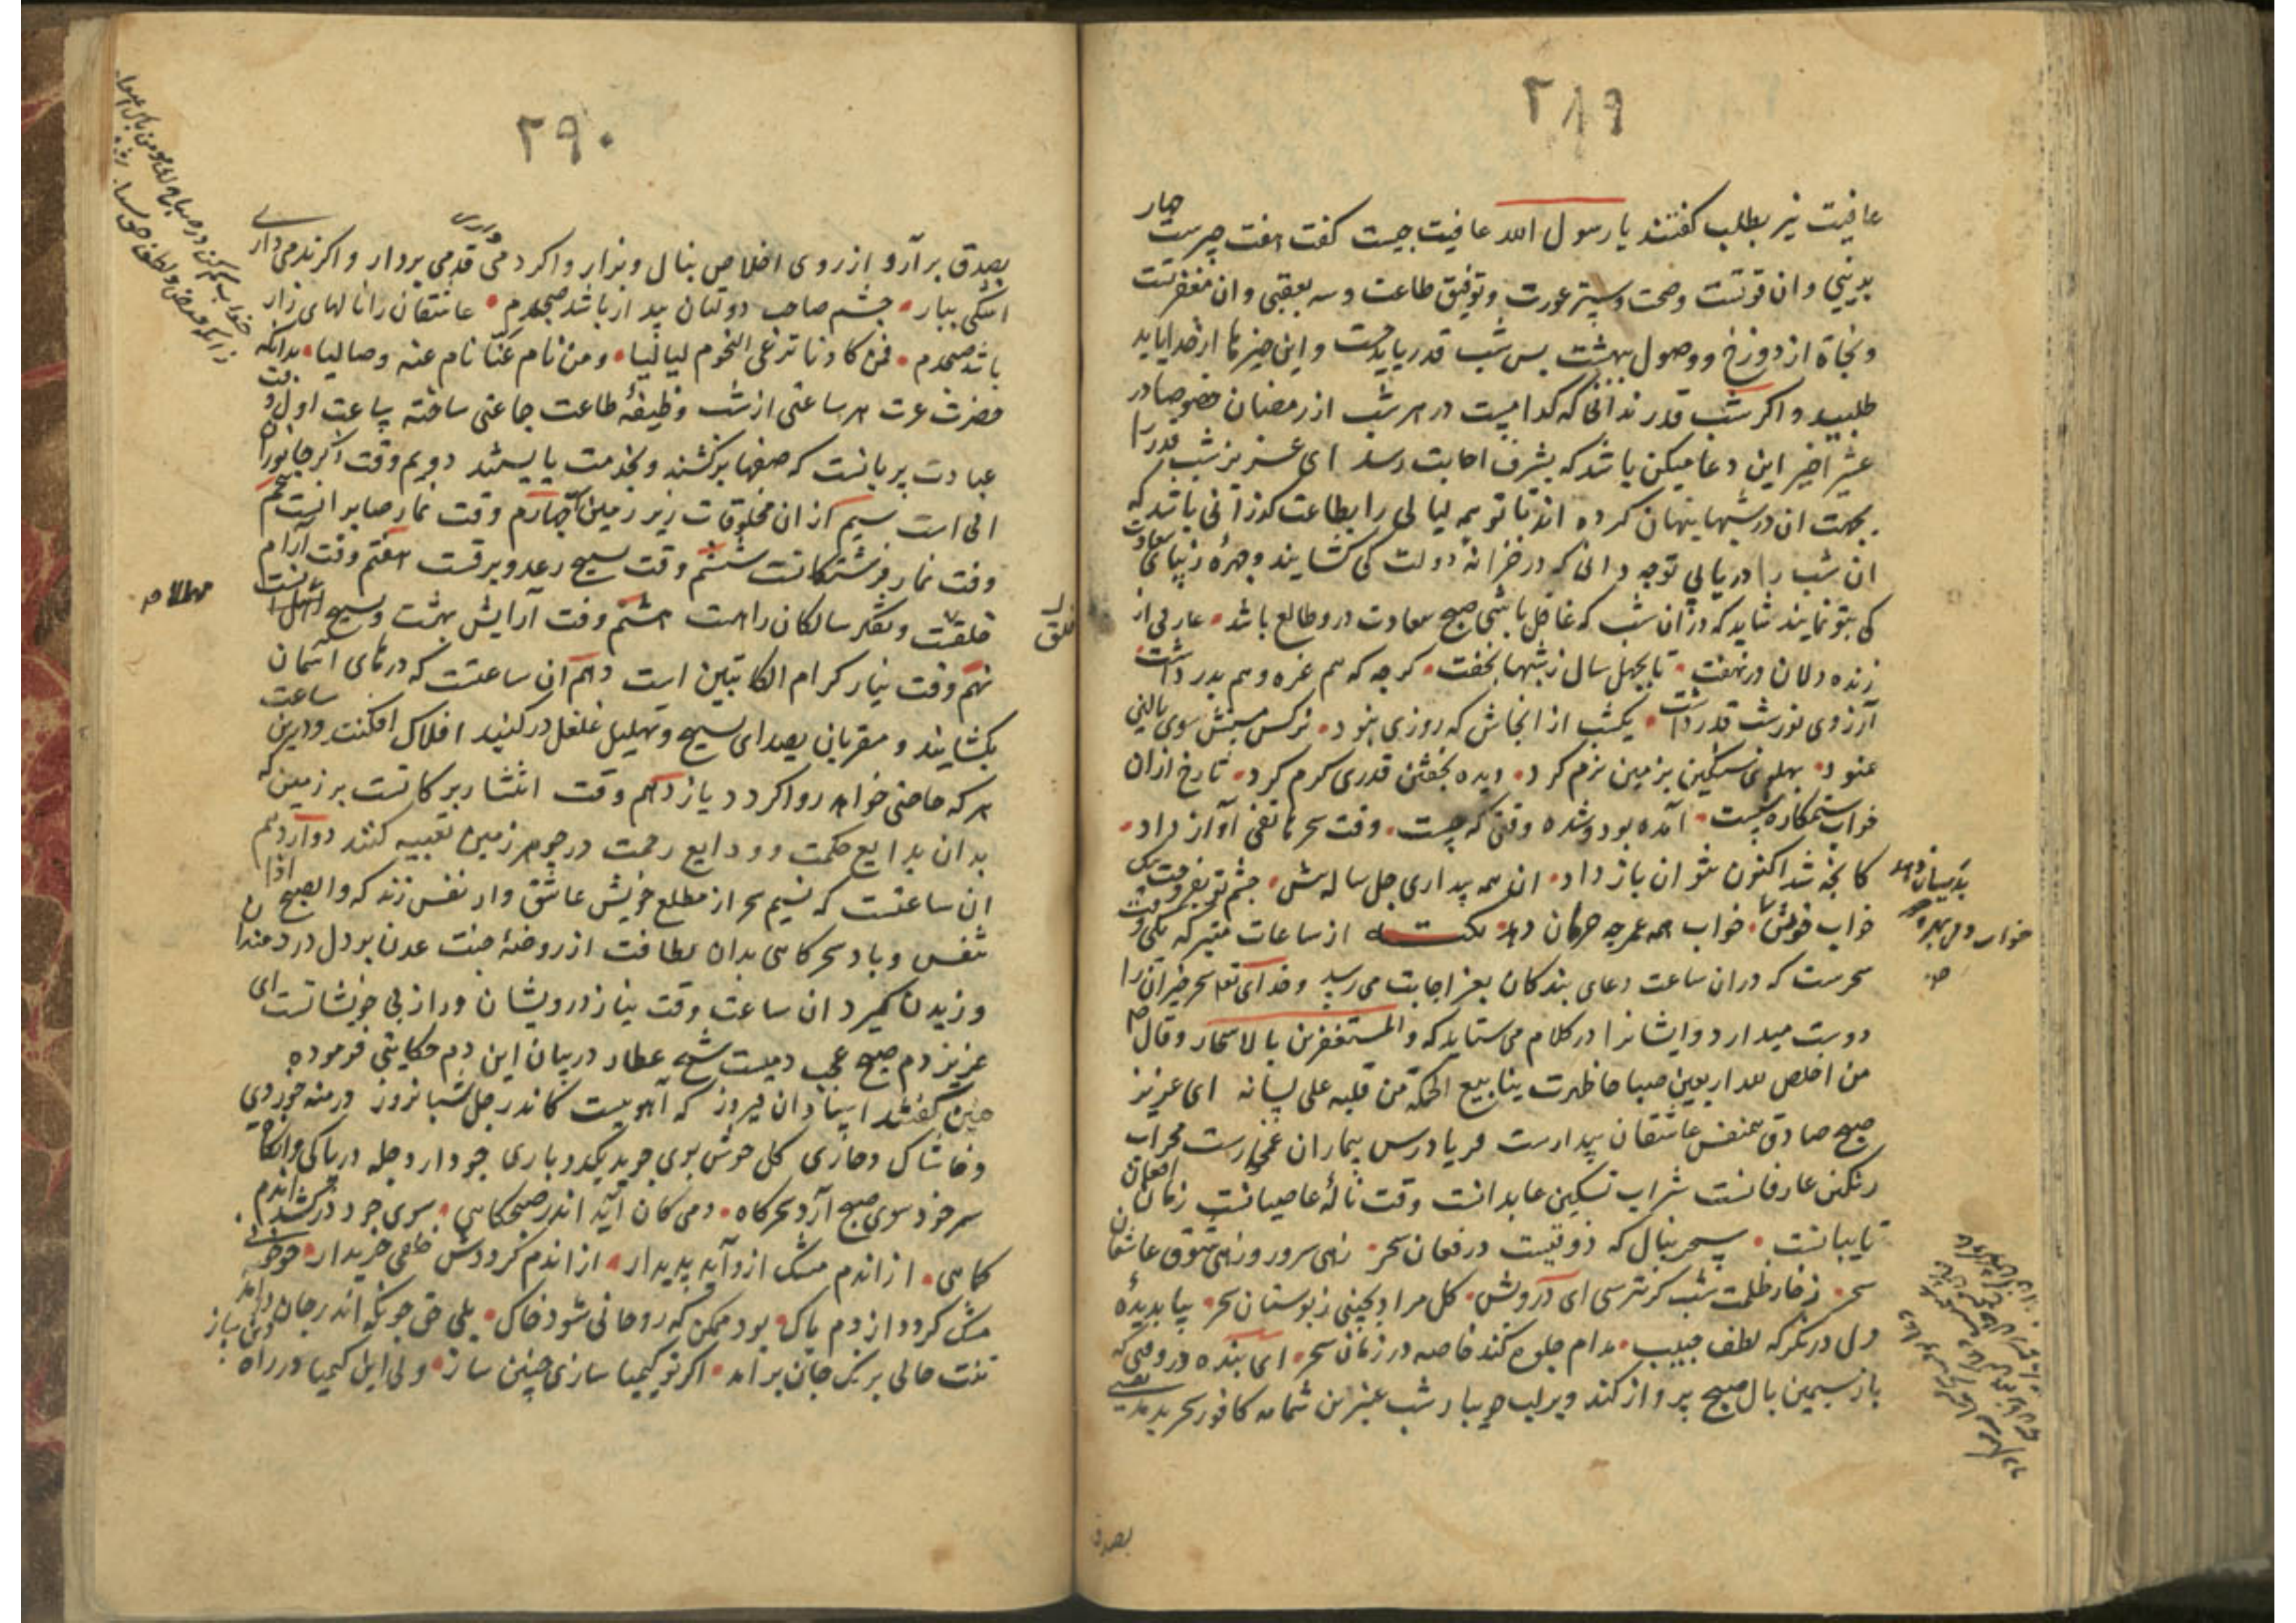 ۲۸۹
عافیت نیز بطلب کفتند یا رسول الله عافیت چیست کفت هفت چیزست چهار
بدنیی وان قوتست وصحت وستر عورت وتوفیق طاعت وسه بعقبی وان مغفرتست
ونجاة از دوزخ ووصول بهشت پس شب قدر باید جست واین چیزها از خدا باید
طلبید واکر شب قدر ندانی که کدامست در هر شب از رمضان خصوصا در
عشر اخیر این دعا میکن باشد که بشرف اجابت رسد ای عزیز شب قدر را
بجهت ان در شبها پنهان کرده اند تا تو همه لیالی را بطاعت کذرانی باشد که
ان شب را دریابی تو چه دانی که در خزانه دولت کی کشایند وچهرهٔ زیبای سعادت
کی بتو نمایند شاید که دران شب که غافل باشی صبح سعادت درو طالع باشد عارفی از
زنده دلان در نهفت تا بچهل سال ز شبها نخفت کرچه که هم غره وهم بدر داشت
آرزوی نور شب قدر داشت یکشب از انجاش که روزی نبود نرکس مستش سوی بالین
غنود پهلوی سنکین بزمین نرم کرد دیده بخفتن قدری کرم کرد تا رخ ازان
خواب ستمکاره شست آمده بود وشده وقتی که جست وقت سحر هاتفی آواز داد
کانچه شد اکنون نتوان باز داد ان همه بیداری چل ساله‌ش چشم تو بفروخت بیک
خواب خوش خواب همه عمر چه حرمان دهد نکته از ساعات متبرکه یکی وقت
سحرست که دران ساعت دعای بندکان بعز اجابت می رسد وخدای تعالی سحرخیزان را
دوست میدارد وایشانرا در کلام می ستاید که والمستغفرین بالاسحار وقال ص
من اخلص لله اربعین صباحا ظهرت ینابیع الحکمة من قلبه علی لسانه ای عزیز
صبح صادق همنفس عاشقان بیدارست فریادرس بیماران غمخوارست محراب
رنکین عارفانست شراب تسکین عابدانست وقت نالهٔ عاصیانست زمان افغان
تایبانست بسحر بنال که ذوقیست در فغان سحر زهی سرور وزهی شوق عاشقان
سحر ز خار ظلمت شب کر نترسی ای درویش کل مراد بچینی ز بوستان سحر بیا بدیدهٔ
دل در نکر که لطف حبیب مدام جلوه کند خاصه در زمان سحر ای بنده در وقتی که
باز سیمین بال صبح پرواز کند وبر لب دیبار شب عنبرین شمامه کافور سحر پدید نفسی
بصدق
۲۹۰
بصدق برآر واز روی اخلاص بنال وبزار واکر دمی قدمی بردار واکر ندمی داری
اشکی ببار چشم صاحب دولتان بیدار باشد صبحدم عاشقان را نالهای زار
باشد صبحدم فمن کان دنا ترعی النجوم لیالیا ومن نام عنا نام عنه وصالیا بدانکه
حضرت عزت هر ساعتی از شب وظیفهٔ طاعت جماعتی ساخته ساعت اول وقت
عبادت پریانست که صفها برکشند وبخدمت بایستند دویم وقت ذکر جانوران
آبی است سیم ازان مخلوقات زیر زمین چهارم وقت نماز صابرانست پنجم
وقت نماز فرشتکانست ششم وقت تسبیح رعد وبرقست هفتم وقت آرام
خلقست وتفکر سالکان راهست هشتم وقت آرایش بهشت وتسبیح اهل انست
نهم وقت نیاز کرام الکاتبین است دهم ان ساعتست که درهای آسمان
بکشایند ومقربان بصدای تسبیح وتهلیل غلغل در کنبد افلاک افکنند ودرین ساعت
هر که حاجتی خواهد روا کردد یازدهم وقت انتشار برکاتست بر زمین که
بدان بدایع حکمت وودایع رحمت در جوهر زمین تعبیه کنند دوازدهم
ان ساعتست که نسیم سحر از مطلع خویش عاشق وار نفس زند که والصبح اذا
تنفس وباد سحرکاهی بدان لطافت از روضهٔ جنت عدن بر دل دردمندان
وزیدن کیرد ان ساعت وقت نیاز درویشان وراز بی خویشانست ای
عزیز دم صبح عجب دمیست شیخ عطار در بیان این دم حکایتی فرموده
چنین کفتند استادان فیروز که آهوییست کاندر چل شبانروز
وخاشاک وخاری کل خوش بوی جوید یکدو باری چو دارد جمله در پاکی وانکاه
سر خود سوی صبح آرد سحرکاه دمی کان آید اندر صبحکاهی سوی خود درکشد اندم
کماهی ازاندم مشک ازو آید پدیدار ازاندم کرددش خلقی خریدار چو خونی
مشک کردد از دم پاک بود ممکن که روحانی شود خاک بلی حق چونکه اندر جان دمد
تنت حالی برنک جان برآمد اکر تو کیمیا سازی چنین ساز ولی این کیمیا در راه دین باز